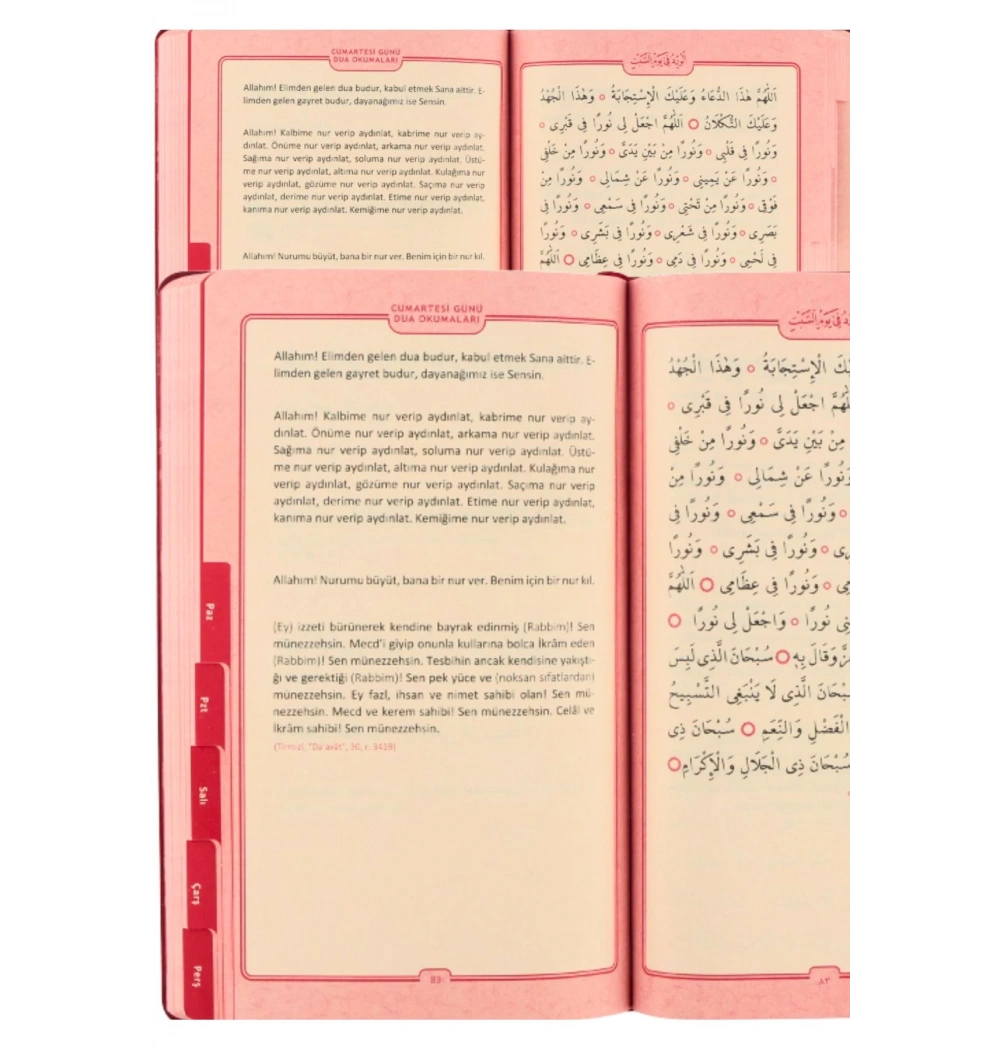 CUMARTESİ GÜNÜ
DUA OKUMALARI
Allahım! Elimden gelen dua budur, kabul etmek Sana aittir. E-
limden gelen gayret budur, dayanağımız ise Sensin.
Allahım! Kalbime nur verip aydınlat, kabrime nur verip ay-
dınlat. Önüme nur verip aydınlat, arkama nur verip aydınlat.
Sağıma nur verip aydınlat, soluma nur verip aydınlat. Üstü-
me nur verip aydınlat, altıma nur verip aydınlat. Kulağıma nur
verip aydınlat, gözüme nur verip aydınlat. Saçıma nur verip
aydınlat, derime nur verip aydınlat. Etime nur verip aydınlat,
kanıma nur verip aydınlat. Kemiğime nur verip aydınlat.
Allahım! Nurumu büyüt, bana bir nur ver. Benim için bir nur kıl.
اَللّٰهُمَّ هٰذَا الدُّعَاءُ وَعَلَيْكَ الْاِسْتِجَابَةُ وَهٰذَا الْجُهْدُ
وَعَلَيْكَ التُّكْلَانُ اَللّٰهُمَّ اجْعَلْ لِى نُورًا فِى قَبْرِى
وَنُورًا فِى قَلْبِى وَنُورًا مِنْ بَيْنِ يَدَىَّ وَنُورًا مِنْ خَلْفِى
وَنُورًا عَنْ يَمِينِى وَنُورًا عَنْ شِمَالِى وَنُورًا مِنْ
فَوْقِى وَنُورًا مِنْ تَحْتِى وَنُورًا فِى سَمْعِى وَنُورًا فِى
بَصَرِى وَنُورًا فِى شَعْرِى وَنُورًا فِى بَشَرِى وَنُورًا
فِى لَحْمِى وَنُورًا فِى دَمِى وَنُورًا فِى عِظَامِى اَللّٰهُمَّ
CUMARTESİ GÜNÜ
DUA OKUMALARI
Allahım! Elimden gelen dua budur, kabul etmek Sana aittir. E-
limden gelen gayret budur, dayanağımız ise Sensin.
Allahım! Kalbime nur verip aydınlat, kabrime nur verip ay-
dınlat. Önüme nur verip aydınlat, arkama nur verip aydınlat.
Sağıma nur verip aydınlat, soluma nur verip aydınlat. Üstü-
me nur verip aydınlat, altıma nur verip aydınlat. Kulağıma nur
verip aydınlat, gözüme nur verip aydınlat. Saçıma nur verip
aydınlat, derime nur verip aydınlat. Etime nur verip aydınlat,
kanıma nur verip aydınlat. Kemiğime nur verip aydınlat.
Allahım! Nurumu büyüt, bana bir nur ver. Benim için bir nur kıl.
(Ey) izzeti bürünerek kendine bayrak edinmiş (Rabbim)! Sen
münezzehsin. Mecd'i giyip onunla kullarına bolca İkrâm eden
(Rabbim)! Sen münezzehsin. Tesbihin ancak kendisine yakıştı-
ğı ve gerektiği (Rabbim)! Sen pek yüce ve (noksan sıfatlardan)
münezzehsin. Ey fazl, ihsan ve nimet sahibi olan! Sen mü-
nezzehsin. Mecd ve kerem sahibi! Sen münezzehsin. Celâl ve
İkrâm sahibi! Sen münezzehsin.
(Tirmizî, "Da'avât", 30, r. 3419)
Paz
Pzt
Salı
Çarş
Perş
83
الْاِسْتِجَابَةُ وَهٰذَا الْجُهْدُ
اجْعَلْ لِى نُورًا فِى قَبْرِى
مِنْ بَيْنِ يَدَىَّ وَنُورًا مِنْ خَلْفِى
وَنُورًا عَنْ شِمَالِى وَنُورًا مِنْ
وَنُورًا فِى سَمْعِى وَنُورًا فِى
وَنُورًا فِى بَشَرِى وَنُورًا
وَنُورًا فِى عِظَامِى اَللّٰهُمَّ
نُورًا وَاجْعَلْ لِى نُورًا
وَقَالَ بِهِ سُبْحَانَ الَّذِى لَبِسَ
الَّذِى لَا يَنْبَغِى التَّسْبِيحُ
الْفَضْلِ وَالنِّعَمِ سُبْحَانَ ذِى
سُبْحَانَ ذِى الْجَلَالِ وَالْاِكْرَامِ
٨٢